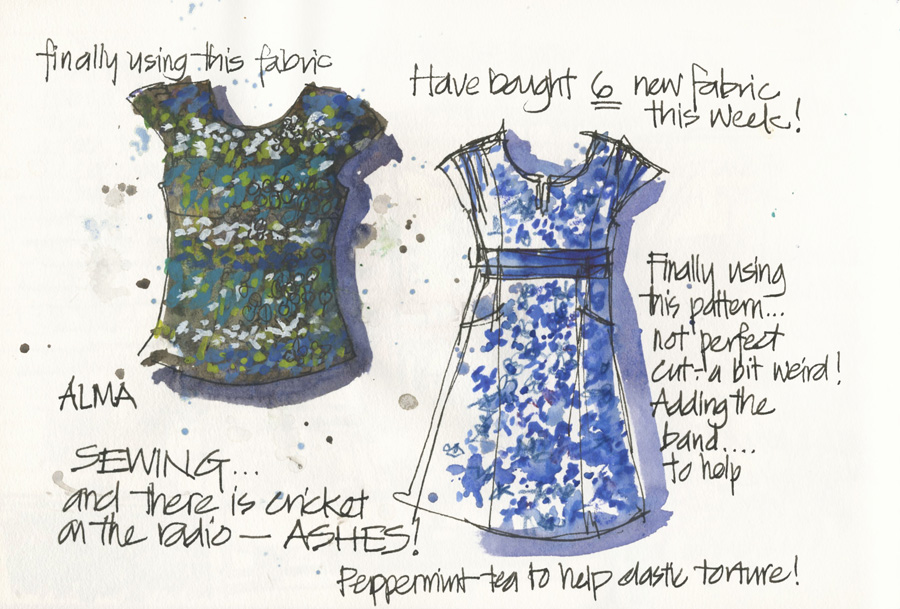 finally using this fabric
Have bought 6 new fabric
this week!
Finally using
this pattern...
not perfect
cut-a bit weird!
Adding the
band....
to help
ALMA
SEWING...
and there is cricket
on the radio — ASHES!
Peppermint tea to help elastic torture!